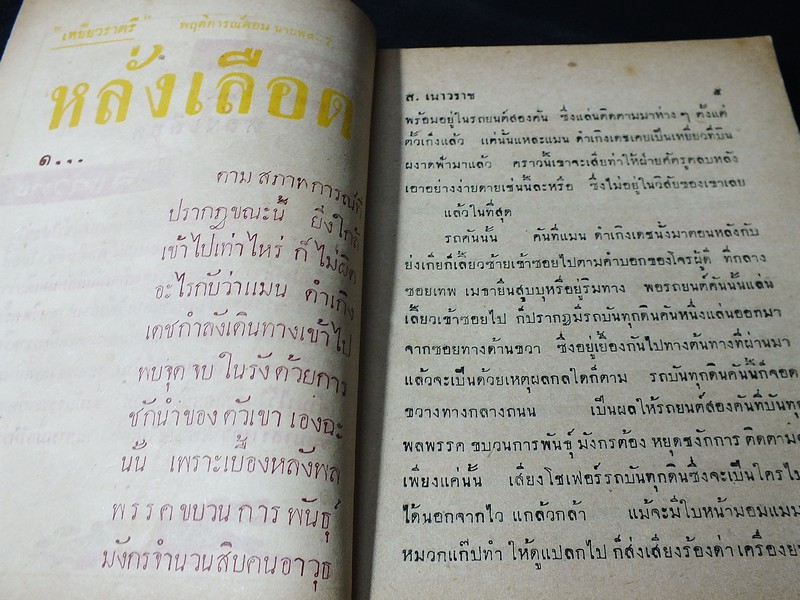 "เหยี่ยวราตรี" พฤติการณ์ตอน นายพล-
หลั่งเลือด
๑...
ตาม สภาพการณ์ที่
ปรากฏขณะนี้ ยิ่งใกล้
เข้าไปเท่าไหร่ ก็ไม่ผิด
อะไรกับว่าแมน ดำเกิง
เดชกำลังเดินทางเข้าไป
พบจุด จบ ในรัง ด้วยการ
ชักนำของ ตัวเขา เองฉะ
นั้น เพราะเบื้องหลังพล
พรรค ขบวน การ พันธุ์
มังกรจำนวนสิบคนอาวุธ
ส. เนาวราช ๕
พร้อมอยู่ในรถยนต์สองคัน ซึ่งแล่นติดตามมาห่าง ๆ ตั้งแต่
ตั้วเก็งแล้ว แค่นั้นแหละแมน ดำเกิงเดชเคยเป็นเหยี่ยวที่บิน
ผงาดฟ้ามาแล้ว คราวนี้เขาจะเสียทำให้ฝ่ายศัตรูตลบหลัง
เอาอย่างง่ายดายเช่นนี้ละหรือ ซึ่งไม่อยู่ในวิสัยของเขาเลย
แล้วในที่สุด
รถคันนั้น คันที่แมน ดำเกิงเดชนั่งมาตอนหลังกับ
ย่งเกียก็เลี้ยวซ้ายเข้าซอยไปตามคำบอกของโจรผู้ดี ที่กลาง
ซอยเทพ เมฆายืนสูบบุหรี่อยู่ริมทาง พอรถยนต์คันนั้นแล่น
เลี้ยวเข้าซอยไป ก็ปรากฏมีรถบันทุกดินคันหนึ่งแล่นออกมา
จากซอยทางด้านขวา ซึ่งอยู่เยื้องกันไปทางต้นทางที่ผ่านมา
แล้วจะเป็นด้วยเหตุผลกลใดก็ตาม รถบันทุกดินคันนี้ก็จอด
ขวางทางกลางถนน เป็นผลให้รถยนต์สองคันที่บันทุก
พลพรรค ขบวนการพันธุ์ มังกรต้อง หยุดชงักการ ติดตาม
เพียงแค่นั้น เสียงโชเฟอร์รถบันทุกดินซึ่งจะเป็นใครไม่
ได้นอกจากไว แกล้วกล้า แม้จะมีใบหน้ามอมแมม
หมวกแก๊ปทำ ให้ดูแปลกไป ก็ส่งเสียงร้องด่า เครื่องย